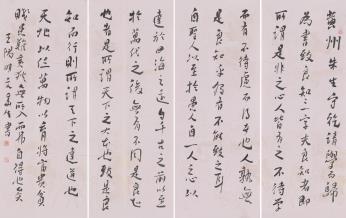 黃州朱生守乾請學而歸
為書致良知三字夫良知者即
所謂是非之心人皆有之不待學
而有不待慮而得者也人孰無
是良知乎獨有不能致之耳
自聖人以至於愚人自一人之心以
達於四海之遠自千古之前以至
於萬代之後無有不同是良知
也者是所謂天下之大本也致是良
知而行則所謂天下之達道也
天地以位萬物以育將富貴貧
賤患難夷狄無所入而弗自得也矣
王陽明文 書